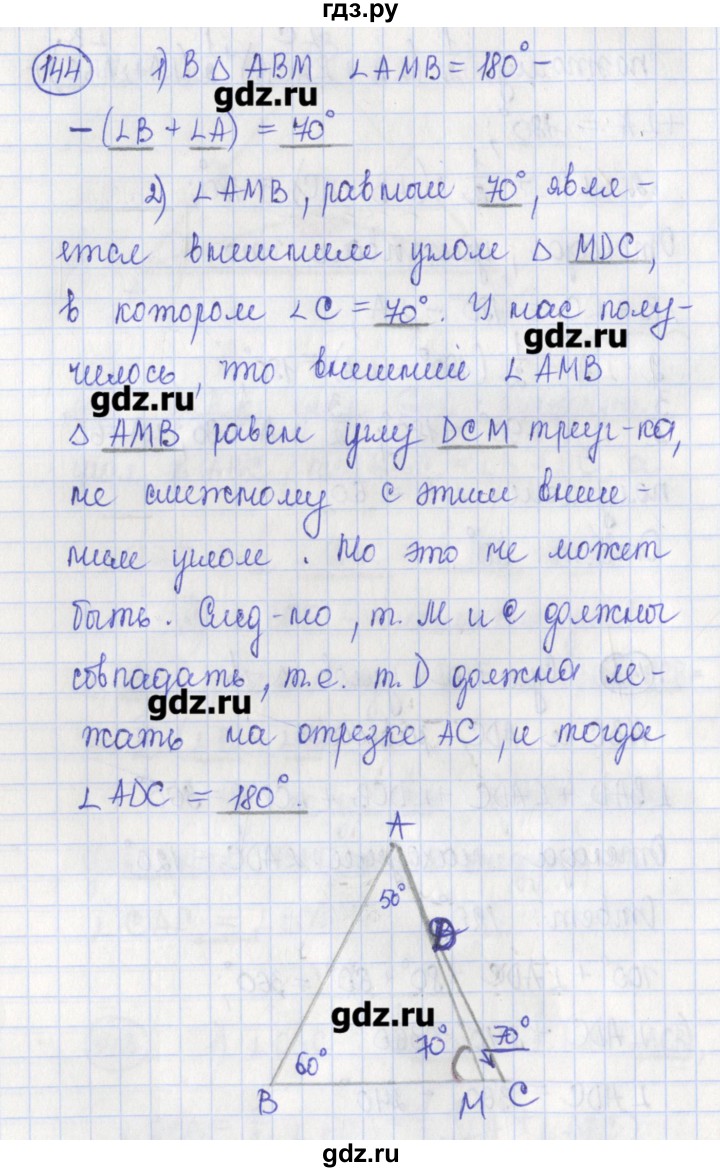 гдз.ру
144 1) В △ ABM ∠AMB = 180° –
gdz.ru
– (∠B + ∠A) = 70°
2) ∠AMB, равный 70°, явля-
ется внешним углом △ MDC,
в котором ∠C = 70°. У нас полу-
gdz.ru
чилось, что внешний ∠AMB
gdz.ru
△ AMB равен углу DCM треуг-ка,
не смежному с этим внеш-
ним углом. Но это не может
быть. След-но, т. M и C должны
совпадать, т.е. т. D должна ле-
gdz.ru
жать на отрезке AC, и тогда
∠ADC = 180°.
A
50°
D
gdz.ru
60° 70° 70°
B M C
gdz.ru